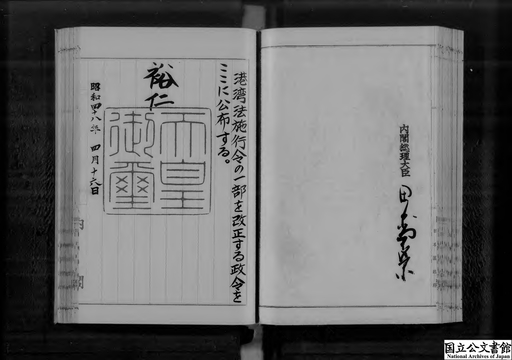 港湾法施行令の一部を改正する政令を
ここに公布する。
裕仁
天皇
御璽
昭和四十八年四月十六日
内閣
内閣総理大臣
田中角榮
国立公文書館
National Archives of Japan